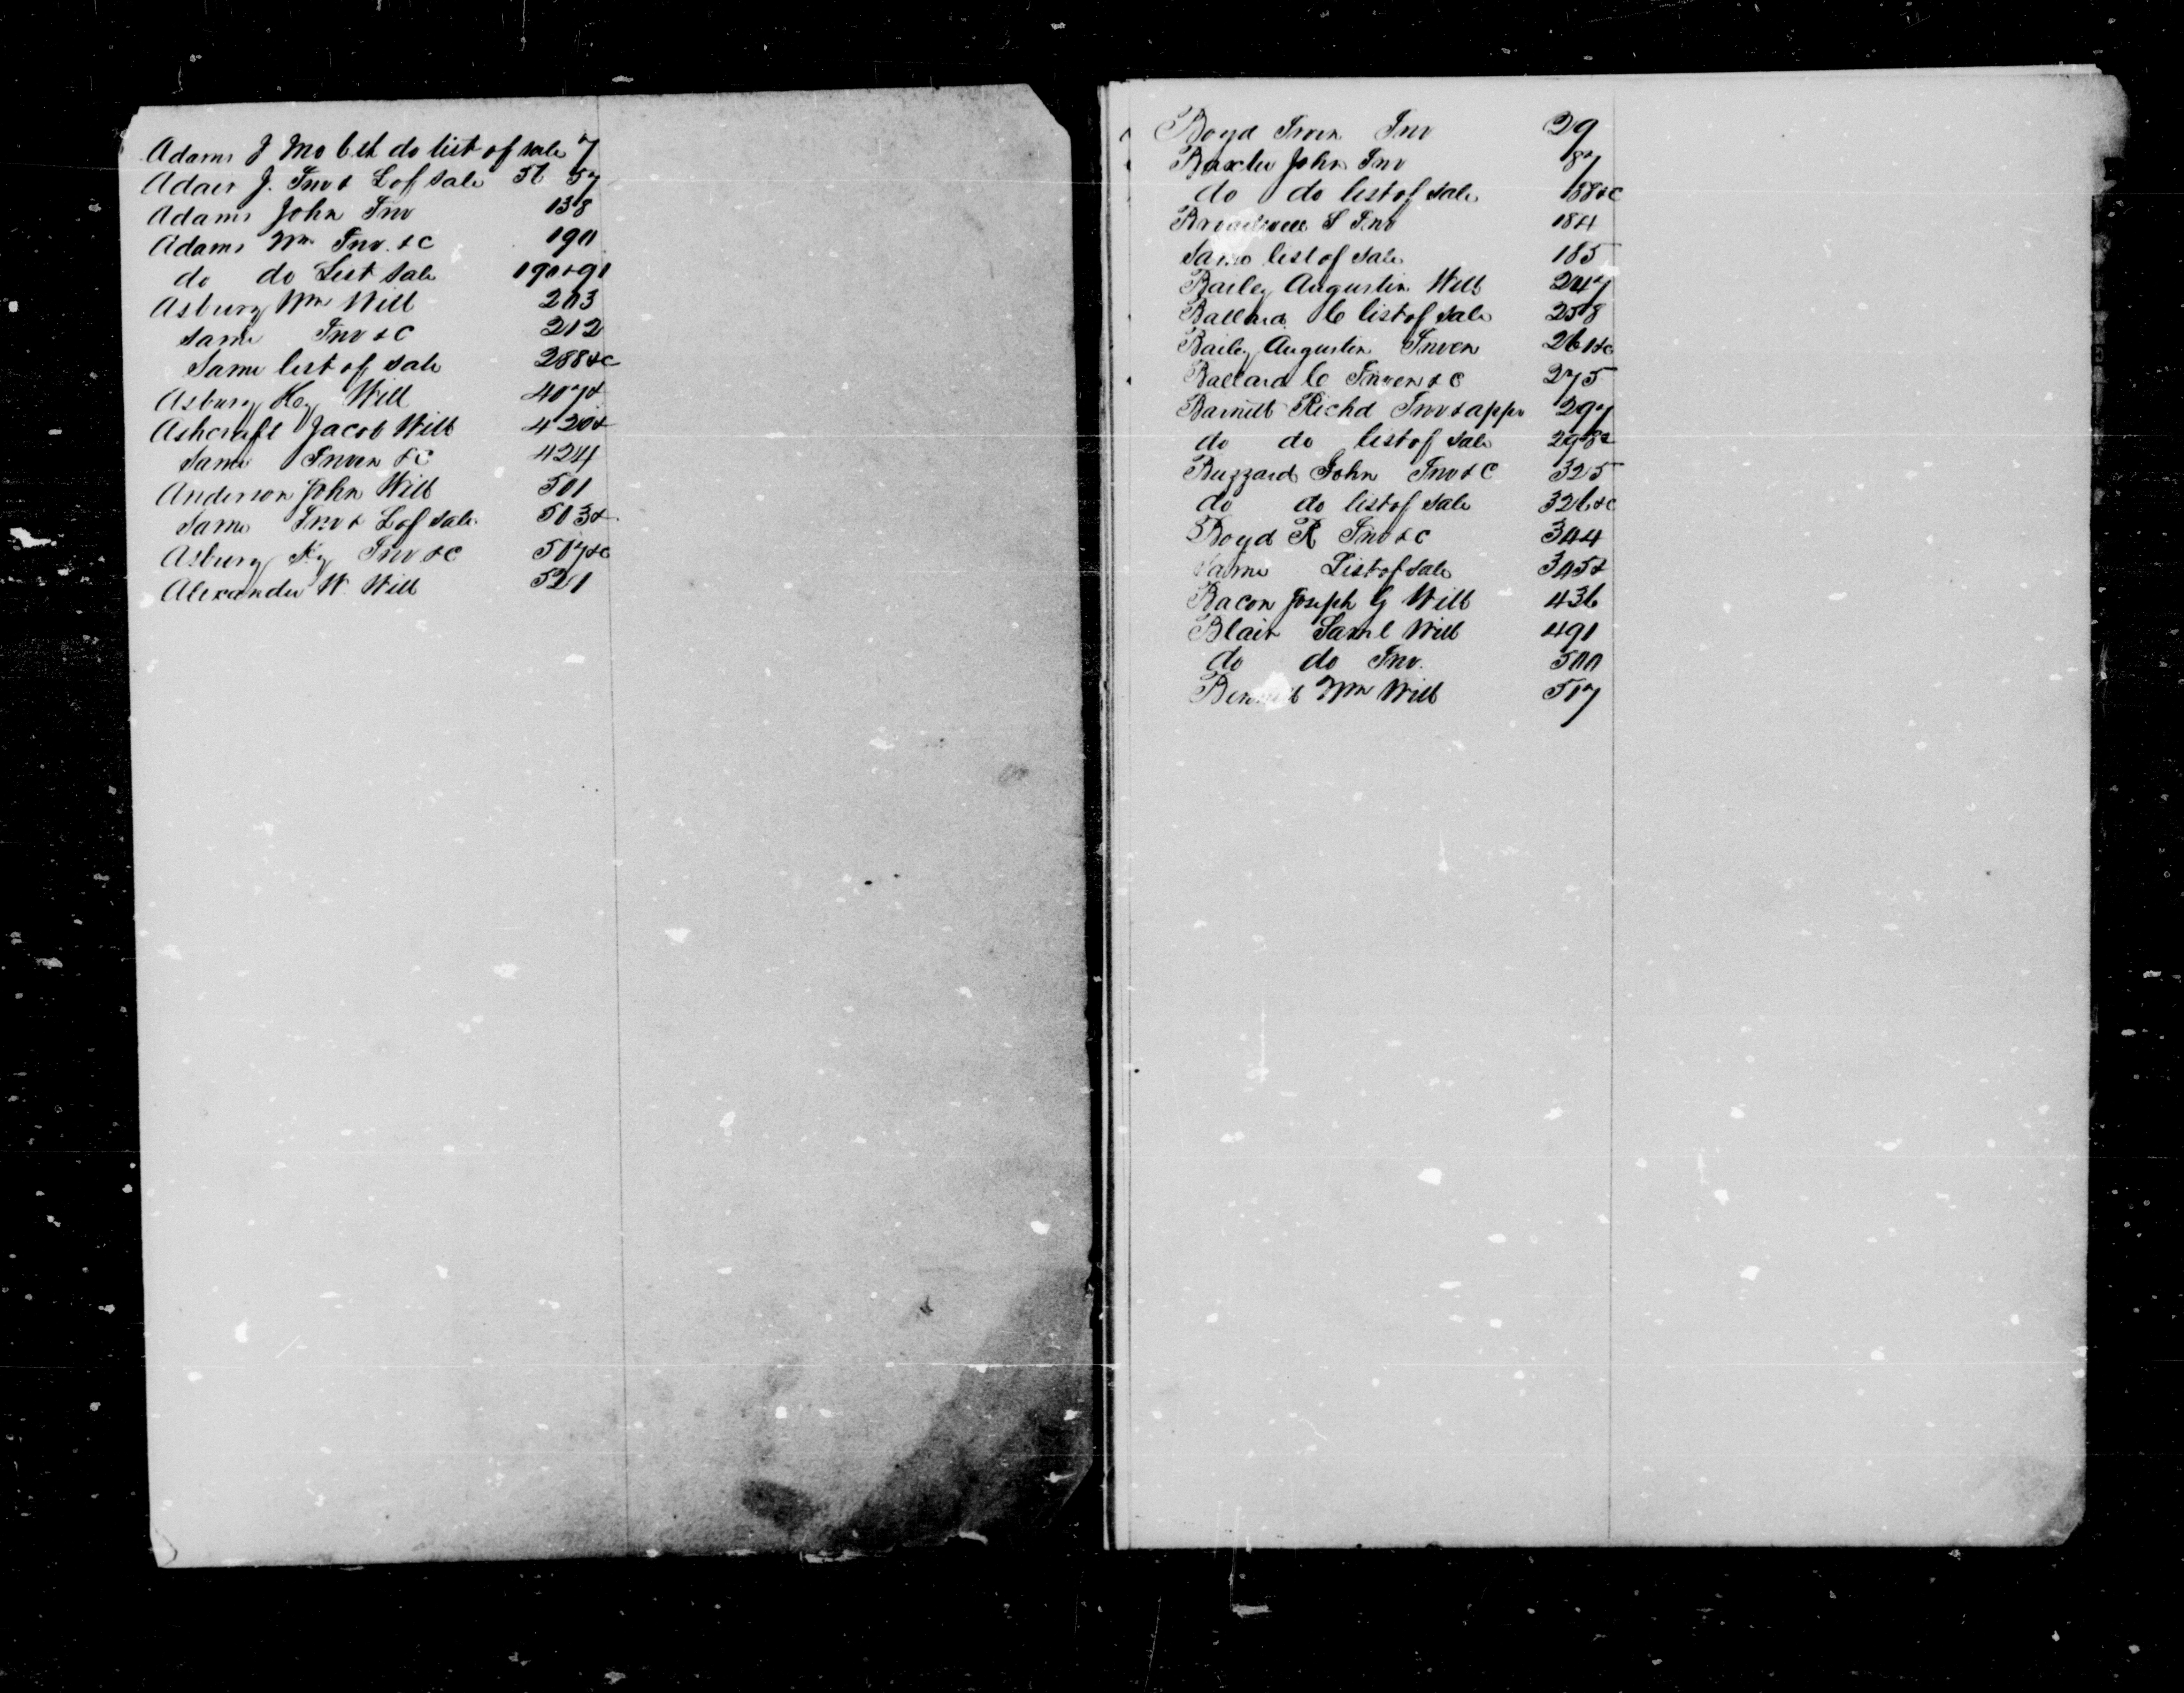 Adams J Mo 6 et do list of sale 7
Adair J. Inv & L of Sale 56 57
Adams John Inv 138
Adams Wm Inv. &C 190
do do List Sale 190 & 91
Asbury Wm Will 203
Same Inv &C 212
Same list of Sale 288 &c
Asbury Hy Will 407 &
Ashcraft Jacob Will 420 &
Same Inven &C 424
Anderson John Will 501
Same Inv & L of Sale 503 &
Asbury Hy Inv &C 507 &c
Alexander W. Will 521
Boyd Irven Inv 29
Baxter John Inv 87
do do list of Sale 88 &c
Broadwell S Inv 184
Same list of Sale 185
Bailey Augustin Will 247
Ballard C list of Sale 258
Bailey Augustin Inven 261 &c
Ballard C Inven &C 275
Barnett Richd Inv & appr 297
do do list of Sale 298 &
Buzzard John Inv &C 325
do do list of Sale 326 &c
Boyd R Inv &C 344
Same List of Sale 345 &
Bacon Joseph G Will 436
Blair Saml Will 491
do do Inv. 500
Bennett Wm Will 517